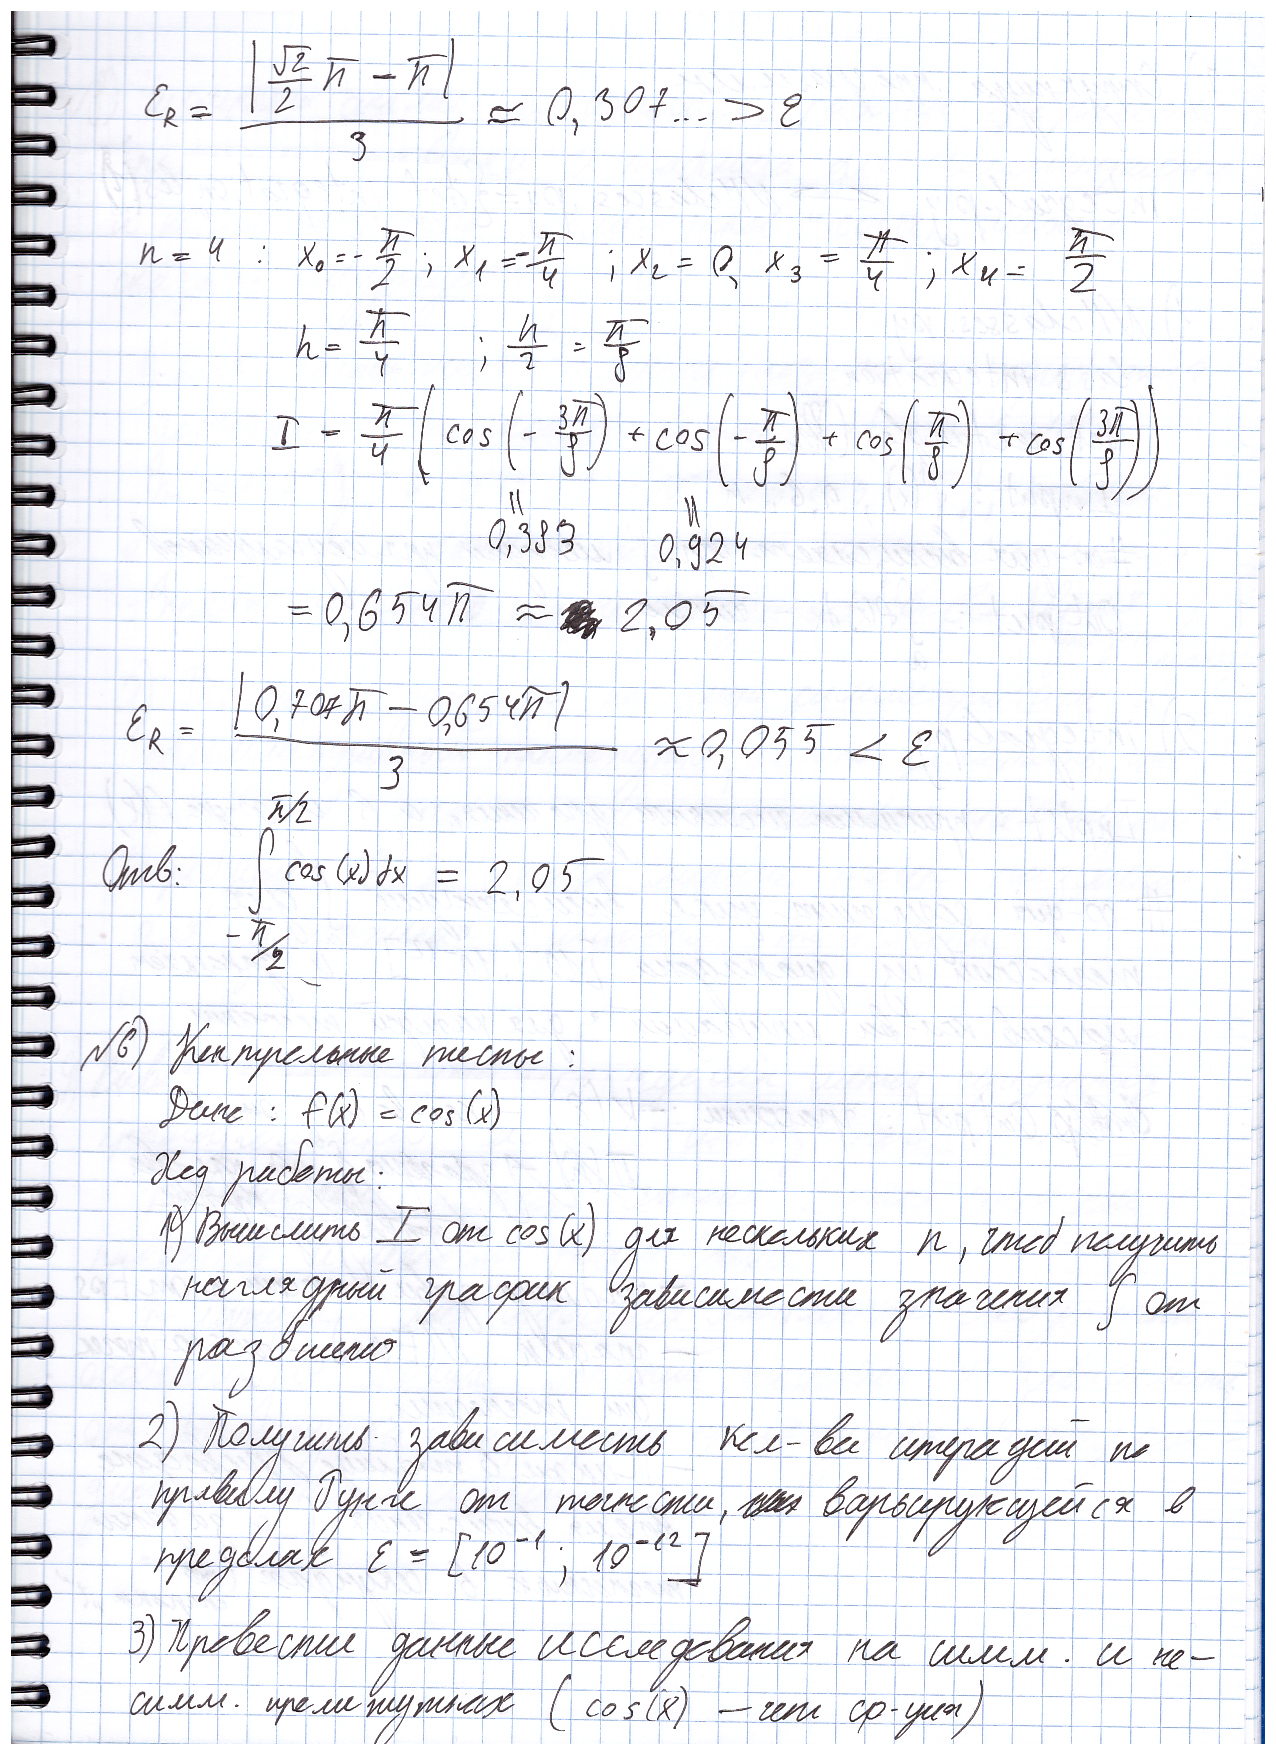 ε_R = |√2/2 π − π| / 3 ≈ 0,307... > ε
n = 4 : x₀ = −π/2 ; x₁ = −π/4 ; x₂ = 0, x₃ = π/4 ; x₄ = π/2
h = π/4 ; h/2 = π/8
I = π/4 (cos(−3π/8) + cos(−π/8) + cos(π/8) + cos(3π/8))
= 0,383 = 0,924
= 0,654π ≈ 2,05
ε_R = |0,707π − 0,654π| / 3 ≈ 0,055 < ε
Отв: ∫_{−π/2}^{π/2} cos(x)dx = 2,05
№6) Контрольные тесты :
Дано : f(x) = cos(x)
Ход работы:
1) Вычислить I от cos(x) для нескольких n, чтоб получить
наглядный график зависимости значения ∫ от
разбиения
2) Получить зависимость кол-ва итераций по
правилу Рунге от точности, варьирующейся в
пределах ε = [10⁻¹ ; 10⁻¹²]
3) Провести данные исследования на симм. и не-
симм. промежутках (cos(x) – чет ф-ция)